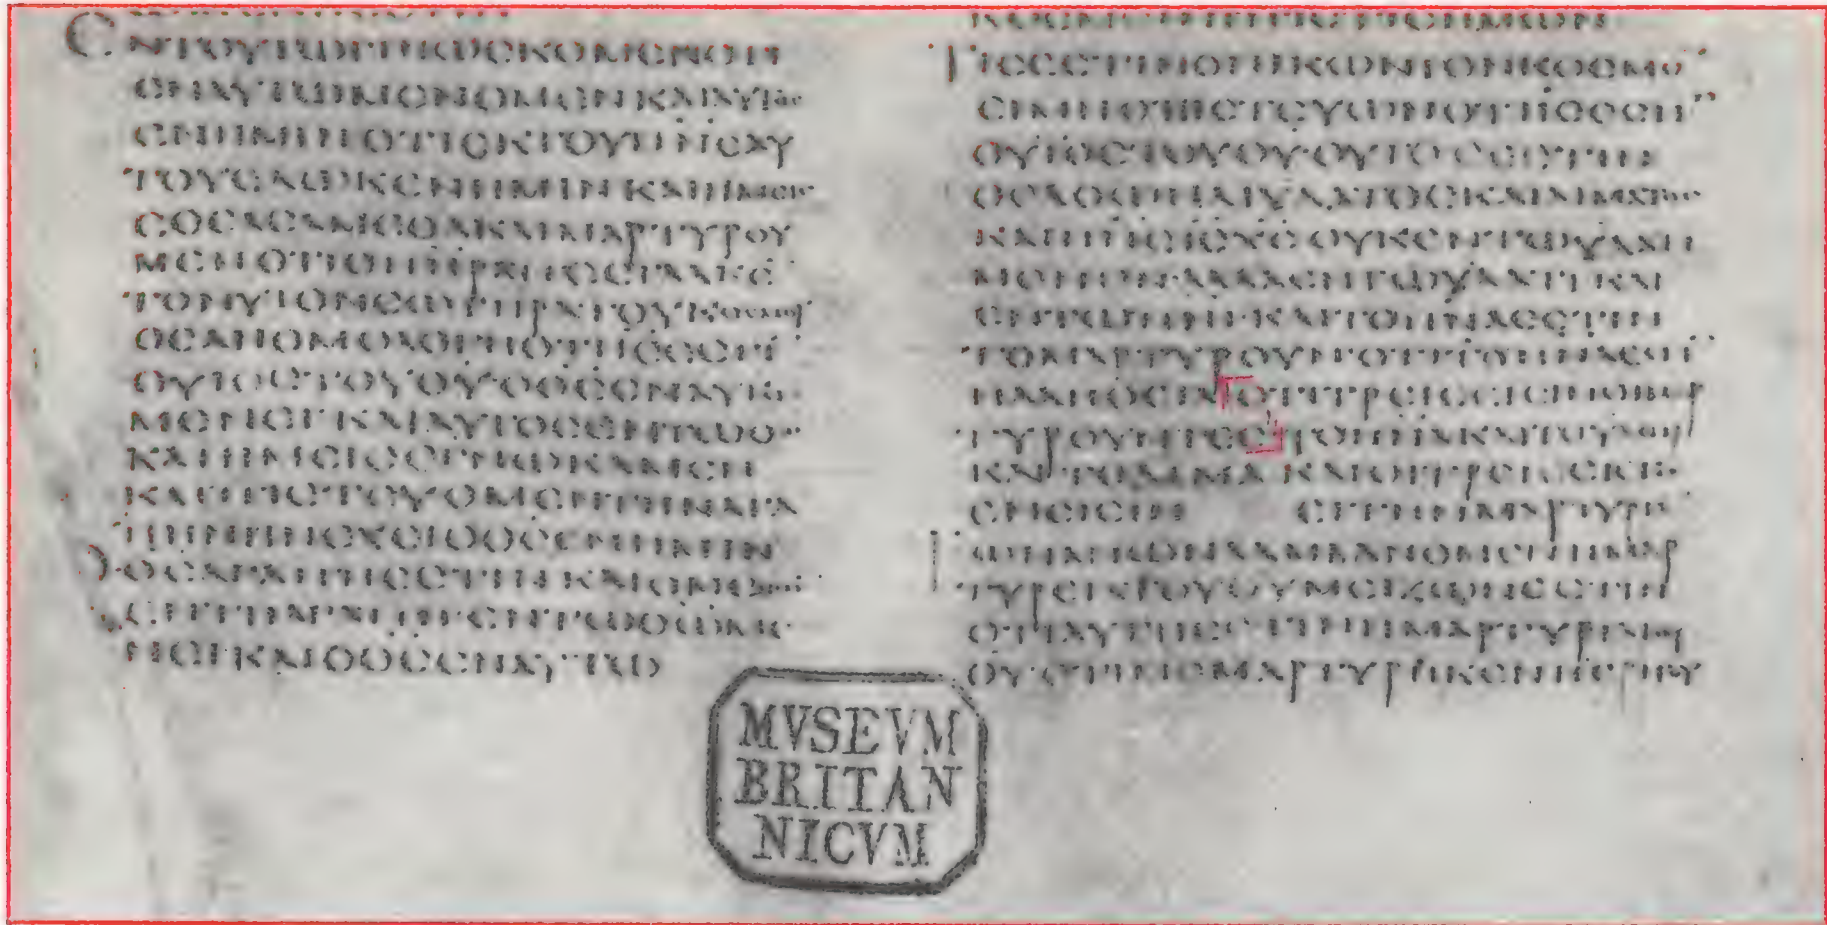 ΕΝΤΟΥΤΩΓΙΝΩϹΚΟΜΕΝΟΤΙ
ΕΝΑΥΤΩΜΕΝΟΜΕΝΚΑΙΑΥΤΟϹ
ΕΝΗΜΙΝΟΤΙΕΚΤΟΥΠΝϹΑΥ
ΤΟΥΕΔΩΚΕΝΗΜΙΝΚΑΙΗΜΕΙϹ
ΕΘΕΑϹΑΜΕΘΑΚΑΙΜΑΡΤΥΡΟΥ
ΜΕΝΟΤΙΟΠΗΡΑΠΕϹΤΑΛΚΕ
ΤΟΝΥΙΟΝϹΩΤΗΡΑΤΟΥΚΟϹΜΟΥ
ΟϹΑΝΟΜΟΛΟΓΗΟΤΙΙϹΕϹΤΙ
ΟΥΙΟϹΤΟΥΘΥΟΘϹΕΝΑΥΤΩ
ΜΕΝΕΙΚΑΙΑΥΤΟϹΕΝΤΩΘΩ
ΚΑΙΗΜΕΙϹΕΓΝΩΚΑΜΕΝ
ΚΑΙΠΙϹΤΕΥΟΜΕΝΤΗΝΑΓΑ
ΠΗΝΗΝΕΧΕΙΟΘϹΕΝΗΜΙΝ
ΟΘϹΑΓΑΠΗΕϹΤΙΝΚΑΙΟΜΕΝΩ
ΕΝΤΗΑΓΑΠΗΕΝΤΩΘΩΜΕ
ΝΕΙΚΑΙΟΘϹΕΝΑΥΤΩ
ΤΙϹΕϹΤΙΝΟΝΙΚΩΝΤΟΝΚΟϹΜΟ
ΕΙΜΗΟΠΙϹΤΕΥΩΝΟΤΙΙϹΕϹΤΙ
ΟΥΙΟϹΤΟΥΘΥΟΥΤΟϹΕϹΤΙΝ
ΟΕΛΘΩΝΔΙΥΔΑΤΟϹΚΑΙΑΙΜΑΤΟϹ
ΚΑΙΠΝϹΙϹΧϹΟΥΚΕΝΤΩΥΔΑΤΙ
ΜΟΝΟΝΑΛΛΑΕΝΤΩΥΔΑΤΙΚΑΙ
ΕΝΤΩΠΝΙΚΑΙΤΟΠΝΑΕϹΤΙΝ
ΤΟΜΑΡΤΥΡΟΥΝΟΤΙΤΟΠΝΑΕϹΤΙ
ΗΑΛΗΘΕΙΑΟΤΙΤΡΕΙϹΕΙϹΙΝΟΙΜΑΡ
ΤΥΡΟΥΝΤΕϹΤΟΠΝΑΚΑΙΤΟΥΔΩΡ
ΚΑΙΤΟΑΙΜΑΚΑΙΟΙΤΡΕΙϹΕΙϹΤΟ
ΕΝΕΙϹΙΝ ΕΙΤΗΝΜΑΡΤΥΡΙΑ
ΤΩΝΑΝΩΝΛΑΜΒΑΝΟΜΕΝΗΜΑΡ
ΤΥΡΕΙΑΤΟΥΘΥΜΕΙΖΩΝΕϹΤΙΝ
ΟΤΙΑΥΤΗΕϹΤΙΝΗΜΑΡΤΥΡΙΑΤΟΥ
ΘΥΟΤΙΜΕΜΑΡΤΥΡΗΚΕΝΠΕΡΙΤΟΥ
MVSEVM
BRITAN
NICVM